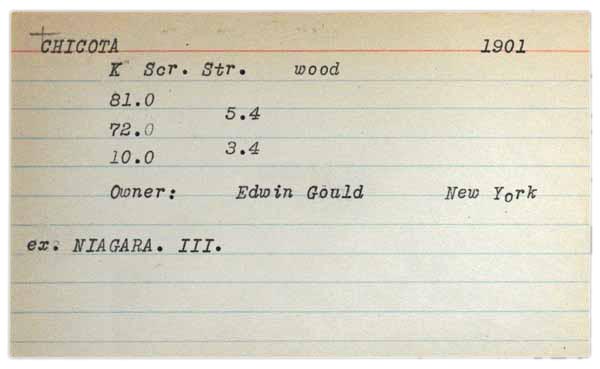 CHICOTA 1901
K Scr. Str. wood
81.0
5.4
72.0
3.4
10.0
Owner: Edwin Gould New York
ex. NIAGARA. III.